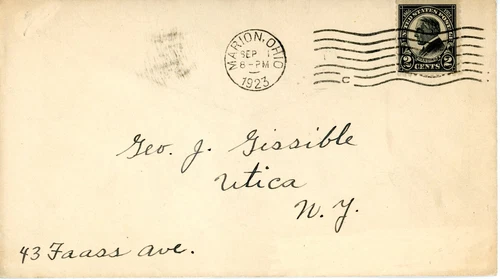 MARION, OHIO
SEP 1
6-PM
1923
C
UNITED STATES POSTAGE
2 CENTS 2
Geo. J. Gissible
Utica
N. Y.
43 Faass Ave.